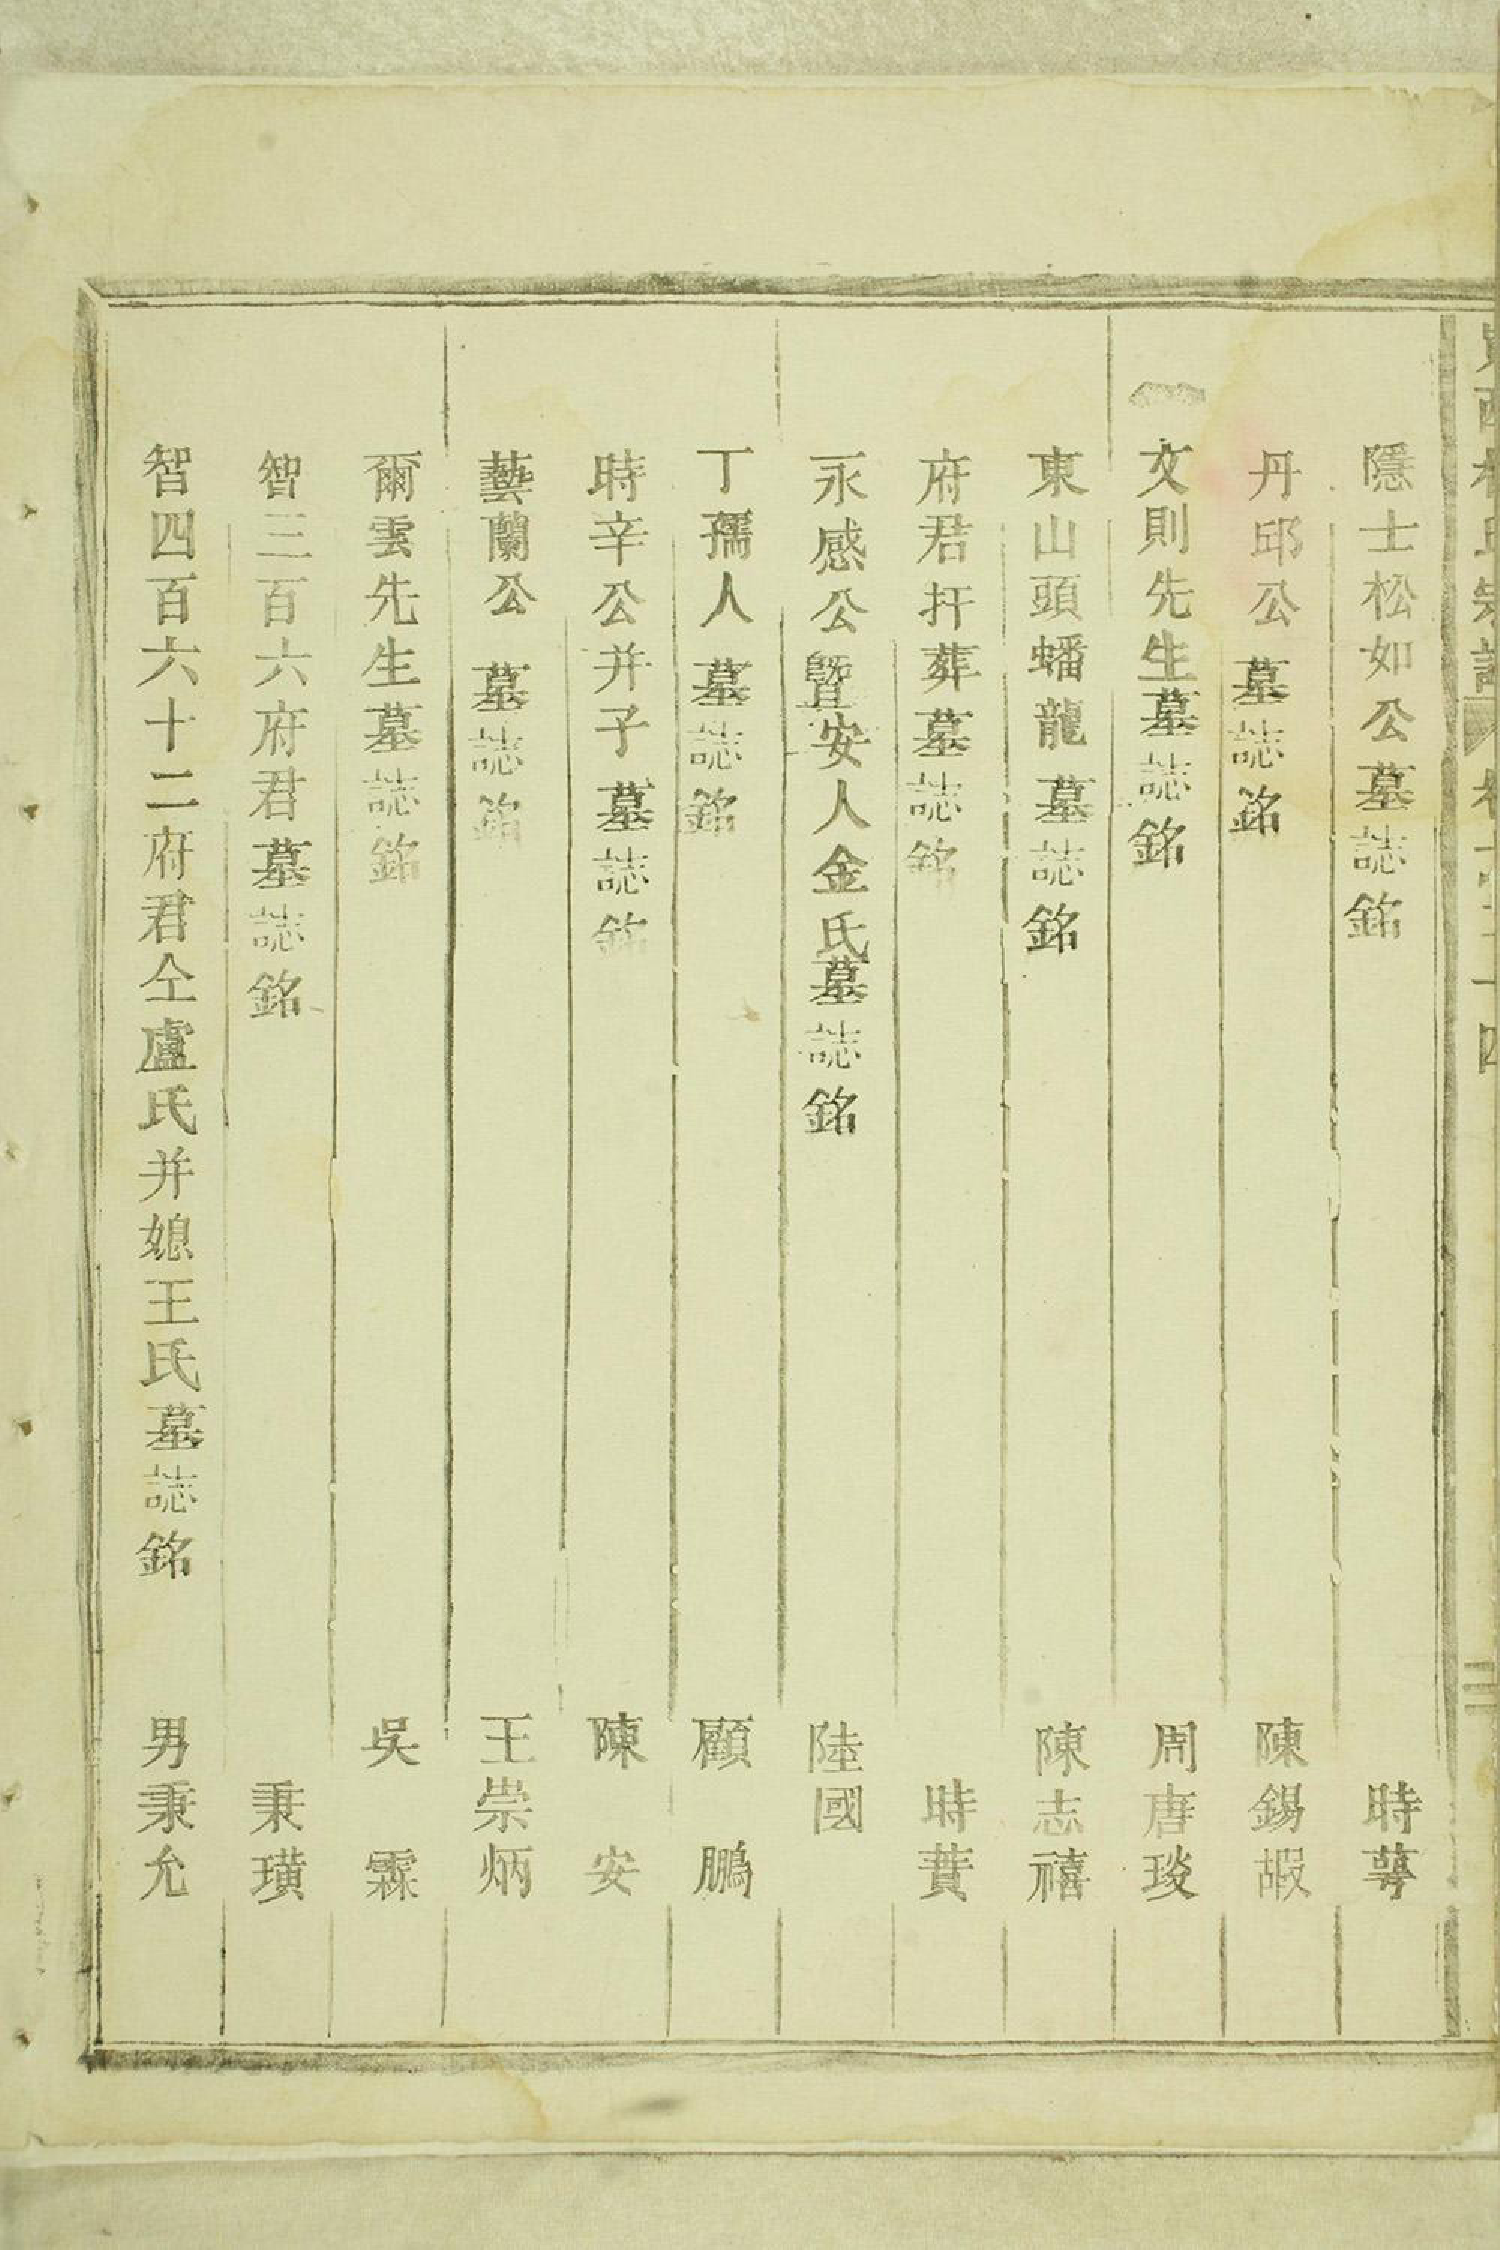 隱士松如公墓誌銘 時蕚
丹邱公墓誌銘 陳錫嘏
文則先生墓誌銘 周唐琰
東山頭蟠龍墓誌銘 陳志禧
府君扞葬墓誌銘 時蕡
永感公暨安人金氏墓誌銘 陸國
丁孺人墓誌銘 顧鵬
時辛公并子墓誌銘 陳安
藝蘭公墓誌銘 王崇炳
爾雲先生墓誌銘 吳霖
智三百六府君墓誌銘 秉璜
智四百六十二府君仝盧氏并媳王氏墓誌銘 男秉允